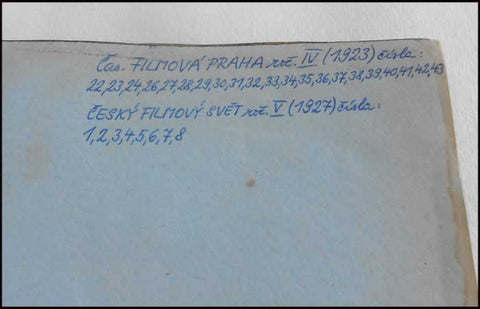 Čas. FILMOVÁ PRAHA roč. IV (1923) čísla:
22,23,24,26,27,28,29,30,31,32,33,34,35,36,37,38,39,40,41,42,43
ČESKÝ FILMOVÝ SVĚT roč. V (1927) čísla:
1,2,3,4,5,6,7,8